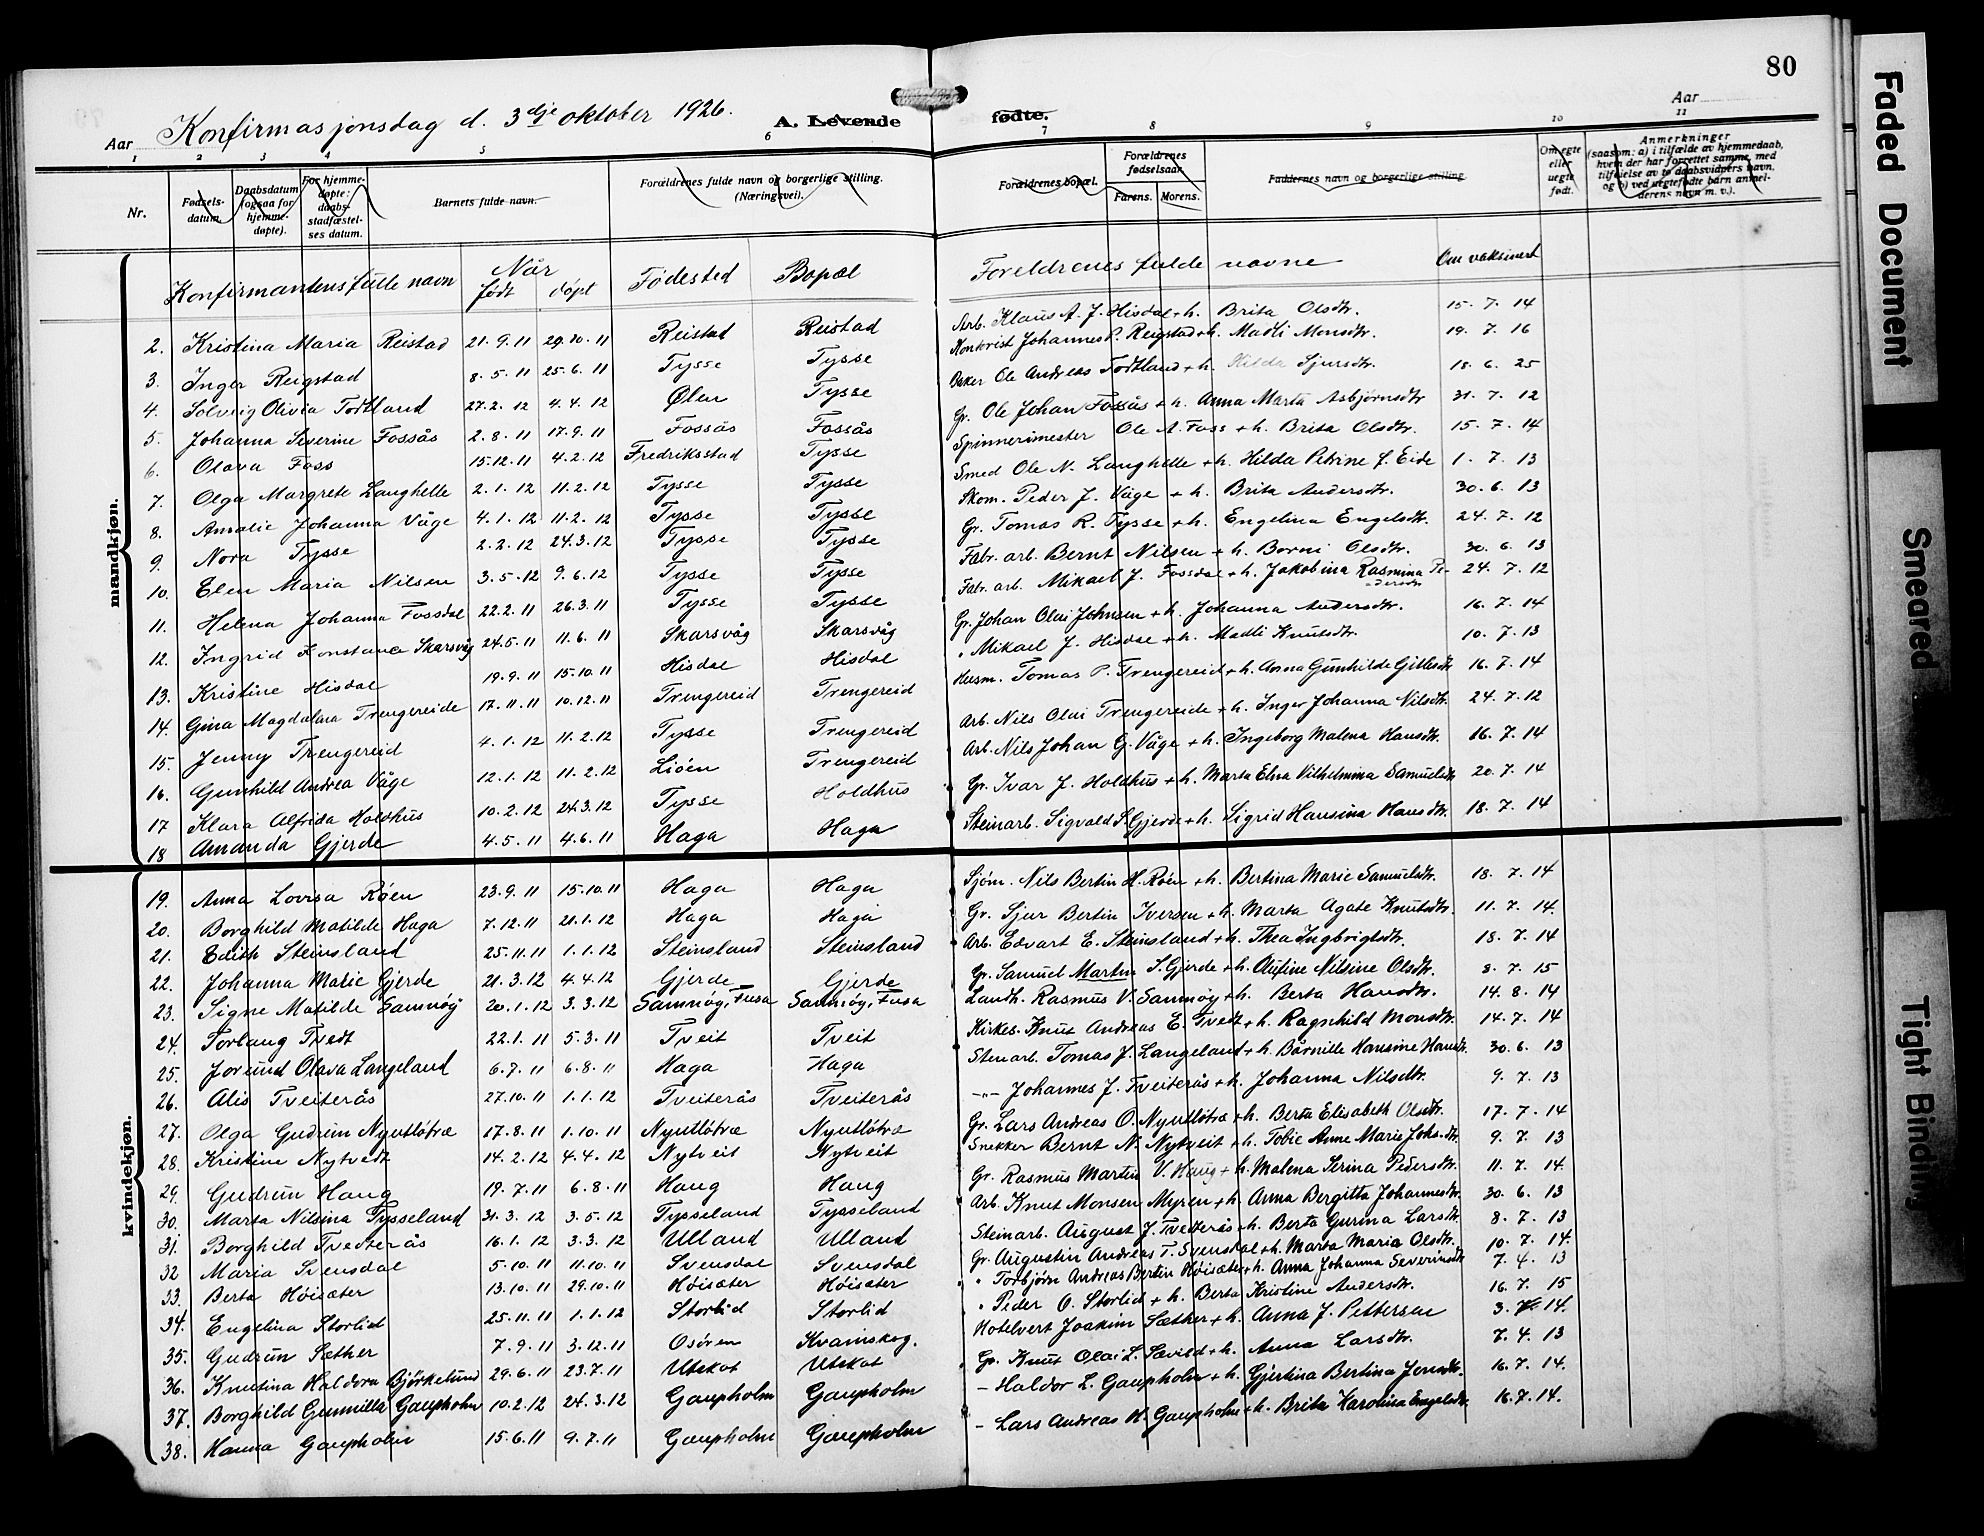 80
Konfirmasjonsdag d. 3dje oktober 1926.
Aar
A. Levende
fødte.
Aar
1 2 3 4 5 6 7 8 9 10 11
Nr.
Fødselsdatum.
Daabsdatum (ogsaa for hjemmedøpte).
For hjemmedøpte: daabsstadfæstelses datum.
Barnets fulde navn.
Forældrenes fulde navn og borgerlige stilling. (Næringsvei).
Forældrenes bopæl.
Forældrenes fødselsaar.
Farens. Morens.
Faddernes navn og borgerlige stilling.
Om egte eller uegte født.
Anmerkninger (saasom: a) i tilfælde av hjemmedaab, hvem der har forrettet samme, med tilføielse av to daabsvidners navn, og b) ved uegtefødte barn anmelderens navn m. v.).
mandkjøn.
kvindekjøn.
Konfirmantens fulle navn Når født døpt Fødested Bopæl Foreldrenes fulde navne Om vaksinert
2. Kristina Maria Reistad 21. 9. 11 29. 10. 11 Reistad Reistad Arb. Klaus A. J. Hisdal + h. Brita Olsdtr. 15. 7. 14
3. Inger Reigstad 8. 5. 11 25. 6. 11 Tysse Tysse Kontorist Johannes P. Reigstad + h. Madli Monsdtr. 19. 7. 16
4. Solveig Olivia Todtland 27. 2. 12 4. 4. 12 Ølen Tysse Baker Ole Andreas Todtland + h. Hilda Sjursdtr. 18. 6. 25
5. Johanna Severine Fossås 2. 8. 11 17. 9. 11 Fossås Fossås Gr. Ole Johan Fossås + h. Anna Marta Asbjørnsdtr 31. 7. 12
6. Olava Foss 15. 12. 11 4. 2. 12 Fredriksstad Tysse Spinnerimester Ole A. Foss + h. Brita Olsdtr. 15. 7. 14
7. Olga Margrete Langhelle 2. 1. 12 11. 2. 12 Tysse Tysse Smed Ole N. Langhelle + h. Hilda Petrine f. Eide 1. 7. 13
8. Amalie Johanna Våge 4. 1. 12 11. 2. 12 Tysse Tysse Skom. Peder J. Våge + h. Brita Andersdtr. 30. 6. 13
9. Nora Tysse 2. 2. 12 24. 3. 12 Tysse Tysse Gr. Tomas R. Tysse + h. Engelina Engelsdtr. 24. 7. 12
10. Elen Maria Nilsen 3. 5. 12 9. 6. 12 Tysse Tysse Fabr. arb. Bernt Nilsen + h. Borni Olsdtr. 30. 6. 13
11. Helena Johanna Fossdal 22. 2. 11 26. 3. 11 Tysse Tysse Fabr. arb. Mikael J. Fossdal + h. Jakobina Rasmina Pedersdtr 24. 7. 12
12. Ingrid Konstance Skarsvåg 24. 5. 11 11. 6. 11 Skarsvåg Skarsvåg Gr. Johan Olai Johnsen + h. Johanna Andersdtr. 16. 7. 14
13. Kristine Hisdal 19. 9. 11 15. 10. 11 Hisdal Hisdal " Mikael J. Hisdal + h. Madli Knutsdtr. 10. 7. 13
14. Gina Magdalena Trengereide 17. 11. 11 10. 12. 11 Trengereid Trengereid Husm. Tomas P. Trengereid + h. Anna Gunhilde Gitlesdtr 16. 7. 14
15. Jenny Trengereid 4. 1. 12 11. 2. 12 Tysse Trengereid Arb. Nils Olai Trengereide + h. Inger Johanna Nilsdtr. 24. 7. 12
16. Gunhild Andrea Våge 12. 1. 12 11. 2. 12 Lióen Trengereid Arb. Nils Johan G. Våge + h. Ingeborg Malena Hansdtr. 16. 7. 14
17 Klara Alfrida Holdhus 10. 2. 12 24. 3. 12 Tysse Holdhus Gr. Ivar J. Holdhus + h. Marta Elna Vilhelmina Samuelsdtr 20. 7. 14
18 Amanda Gjerde 4. 5. 11 4. 6. 11 Haga Haga Steinarb. Sigvald S. Gjerde + h. Sigrid Hansina Hansdtr. 18. 7. 14
19. Anna Lovisa Røen 23. 9. 11 15. 10. 11 Haga Haga Sjøm. Nils Bertin H. Røen + h. Bertina Marie Samuelsdtr. 18. 7. 14
20. Borghild Matilde Haga 7. 12. 11 21. 1. 12 Haga Haga Gr. Sjur Bertin Iversen + h. Marta Agate Knutsdtr. 11. 7. 14.
21. Edith Steinsland 25. 11. 11 1. 1. 12 Steinsland Steinsland Arb. Edvart E. Steinsland + h. Thea Ingbrigtsdtr. 18. 7. 14
22. Johanna Matie Gjerde 21. 3. 12 4. 4. 12 Gjerde Gjerde Gr. Samuel Martin S. Gjerde + h. Auline Nilsine Olsdtr. 8. 7. 15
23. Signe Matilde Samnøy 20. 1. 12 3. 3. 12 Samnøy, Fusa Samnøy, Fusa Landh. Rasmus V. Samnøy + h. Berta Hansdtr. 14. 8. 14
24. Torlaug Tvedt 22. 1. 11 5. 3. 11 Tveit Tveit Kirkes. Knut Andreas E. Tvedt + h. Ragnhild Monsdtr. 14. 7. 14
25. Jorund Olava Langeland 6. 7. 11 6. 8. 11 Haga Haga Stenarb. Tomas J. Langeland + h. Bårnille Hansine Hansdtr. 30. 6. 13
26. Alis Tveiterås 27. 10. 11 1. 1. 12 Tveiterås Tveiterås -"- Johannes J. Tveiterås + h. Johanna Nilsdtr. 9. 7. 13
27. Olga Gudrun Nyutlåtræ 17. 8. 11 1. 10. 11 Nyutlåtræ Nyutlåtræ Gr. Lars Andreas O. Nyutlåtræ + h. Berta Elisabeth Olsdtr. 17. 7. 14
28. Kristine Nytvedt 14. 2. 12 4. 4. 12 Nytveit Nytveit Snekker Bernt N. Nytveit + h. Tobie Anne Marie Johs.dtr. 9. 7. 13
29. Gudrun Haug 19. 7. 11 6. 8. 11 Haug Haug Gr. Rasmus Martin V. Haug + h. Malena Serina Pedersdtr. 11. 7. 14.
30. Marta Nilsina Tysseland 31. 3. 12 3. 5. 12 Tysseland Tysseland Arb. Knut Monsen Myren + h. Anna Bergitta Johannesdtr. 30. 6. 13
31. Borghild Tvedterås 16. 1. 12 3. 3. 12 Ulland Ulland Steinarb. August J. Tvedterås + h. Berta Gurina Larsdtr. 8. 7. 13
32 Maria Svensdal 5. 10. 11 11. 10. 11 Svensdal Svensdal Gr. Augustin Andreas T. Svensdal + h. Marta Maria Olsdtr. 10. 7. 14.
33. Berta Høisæter 13. 10. 11 29. 10. 11 Høisæter Høisæter " Torbjørn Andreas Bertin Høisæter + h. Anna Johanna Severinsdtr 7. 4. 13
34. Engelina Storlid 25. 11. 11 1. 1. 12 Storlid Storlid " Peder O. Storlid + h. Berta Kristine Andersdtr. 16. 7. 15
35. Gudrun Sæther 7. 9. 11 3. 12. 11 Osøren Kvamskog. Hotelvert Joakim Sæther + h. Anna J. Pettersen 3. 7. 14.
36. Knutina Haldora Bjørkelund 29. 6. 11 23. 7. 11 Utskot Utskot Gr. Knut Olai L. Sævild + h. Anna Larsdtr. 7. 4. 13
37. Borghild Gunnilla Gaupholm 10. 2. 12 24. 3. 12 Gaupholm Gaupholm - Haldor L. Gaupholm + h. Gjertina Bertina Jensdtr. 16. 7. 14.
38. Hanna Gaupholm 15. 6. 11 9. 7. 11 Gaupholm Gaupholm - Lars Andreas H. Gaupholm + h. Brita Karolina Engelsdtr. 16. 7. 14.
Faded Document
Smeared
Tight Binding